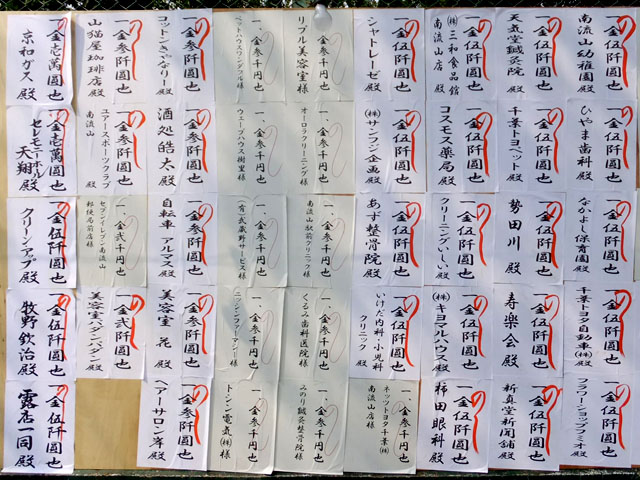 一金伍阡圓也
南流山幼稚園 殿
一金伍阡圓也
天気堂鍼灸院 殿
一金伍阡圓也
㈱三和食品館
南流山店 殿
一金伍阡圓也
シャトレーゼ 殿
一、金参千円也
リブル美容室様
一、金参千円也
一金参阡圓也
コットンきゃんでぃー 殿
一金参阡圓也
山猫屋珈琲店 殿
一金壱萬圓也
京和ガス 殿
一金伍阡圓也
ひやま歯科 殿
一金伍阡圓也
千葉トヨペット 殿
一金伍阡圓也
コスモス薬局 殿
一金伍阡圓也
㈱サンラジ企画 殿
一、金参千円也
オーロラクリーニング様
一、金参千円也
ウェーブハウス樹里様
一金参阡圓也
酒処皓太 殿
一金参阡圓也
ユアースポーツクラブ
南流山 殿
一金壱萬圓也
セレモニーホール
天翔 殿
一金伍阡圓也
なかよし保育園 殿
一金伍阡圓也
勢田川 殿
一金伍阡圓也
クリーニングいしい 殿
一金伍阡圓也
あず整骨院 殿
一、金参千円也
南流山駅前クリニック様
一、金参千円也
(有)武蔵野サービス様
一金参阡圓也
自転車アルマス 殿
一、金弐千円也
セブンイレブン南流山
郵便局前店様
一金伍阡圓也
クリーンアブ 殿
一金伍阡圓也
千葉トヨタ自動車㈱ 殿
一金伍阡圓也
寿楽会 殿
一金伍阡圓也
㈱キヨマルハウス 殿
一金伍阡圓也
いけだ内科・小児科
クリニック 殿
一、金参千円也
くるみ歯科医院様
一、金参千円也
ニッシンファーマシー様
一金参阡圓也
美容室 花 殿
一金弐阡圓也
美容室バタンバタン 殿
一金伍阡圓也
牧野欽治 殿
一金伍阡圓也
フラワーショップフミオ 殿
一金伍阡圓也
新真堂新聞舗 殿
一金伍阡圓也
柿田眼科 殿
一、金参千円也
ネッツトヨタ千葉㈱
南流山店様
一、金参千円也
みのり鍼灸整骨院様
一、金参千円也
トーシン電気㈱様
一金参阡圓也
ヘアーサロン峯 殿
一金伍阡圓也
露店一同 殿